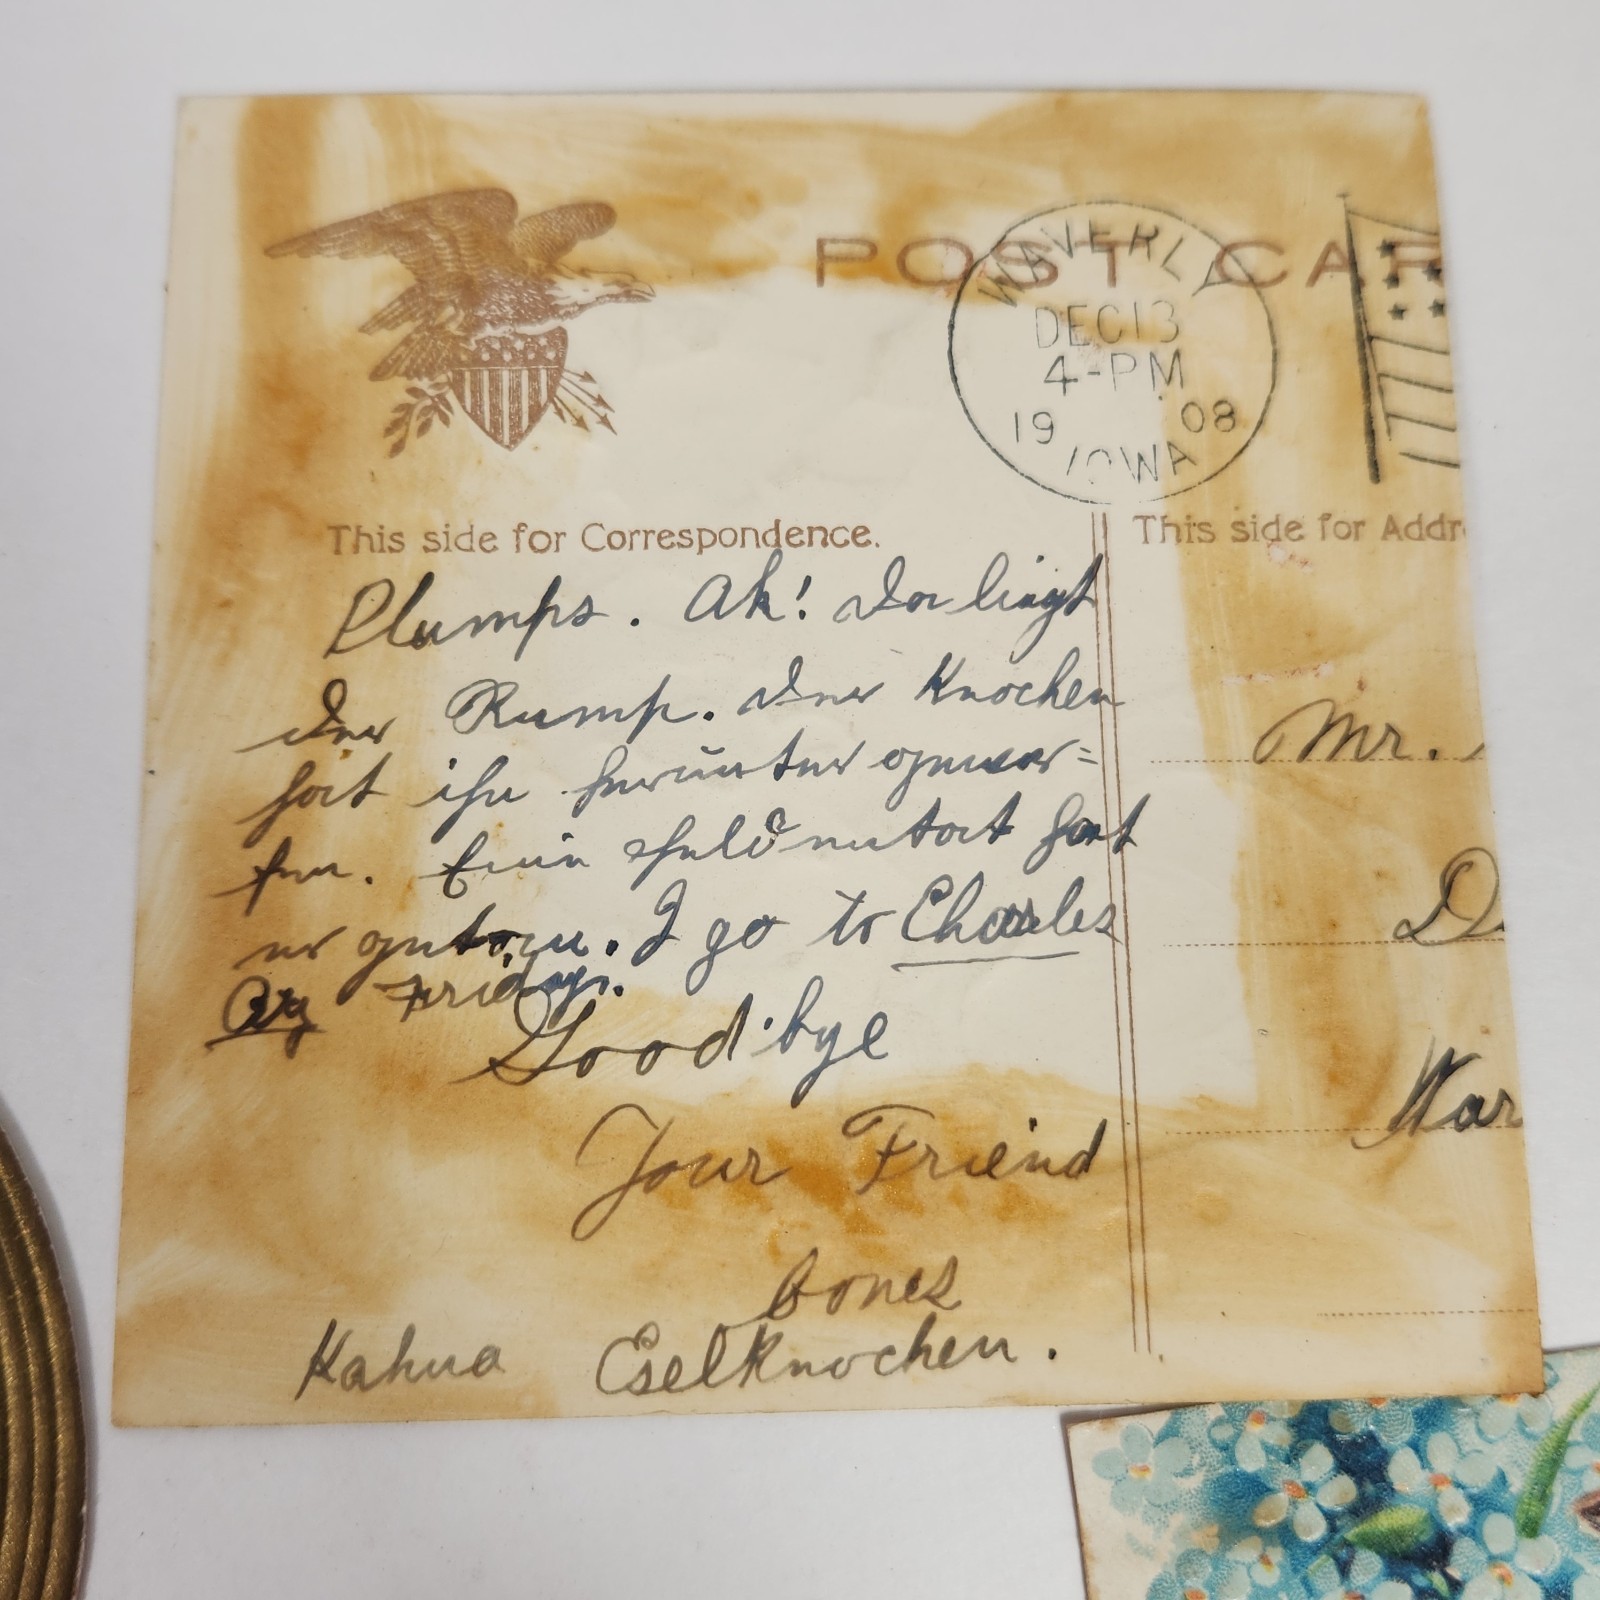 POST CAR
WAVERLY
DEC 13
4-PM
19 08
IOWA
This side for Correspondence.
This side for Addr
Plumps. Ah! Da liegt
der Rump. Der Knochen
hat ihn herunter gewor=
fen. Eine Heldentat hat
er getan. I go to Charles
Friday.
Good bye
Your Friend
bones
Kahua Eselknochen.
Mr.
D
War